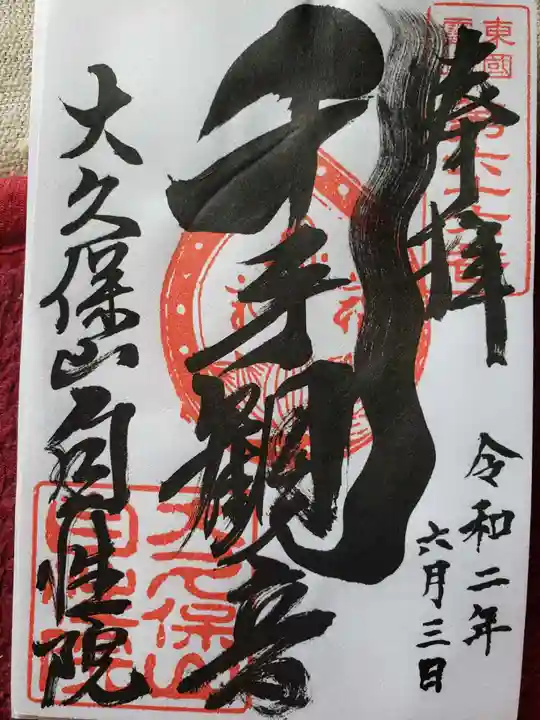 奉拝
令和二年
六月三日
千手観音
大久保山自性院
東國
大久保山
自性院